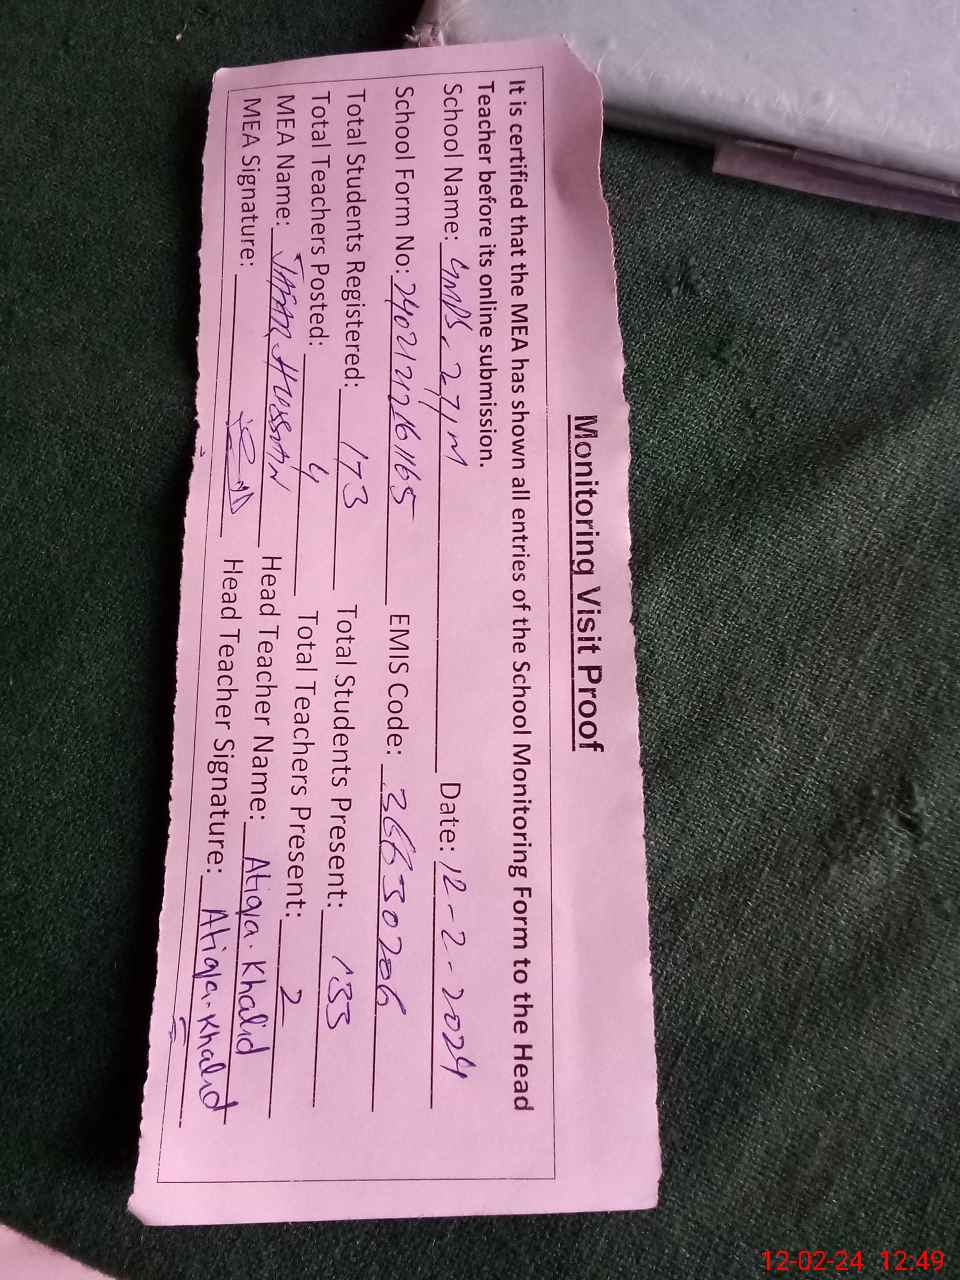 Monitoring Visit Proof
It is certified that the MEA has shown all entries of the School Monitoring Form to the Head
Teacher before its online submission.
School Name: GMPS. 27/M Date: 12-2-2024
School Form No: 2402121261165 EMIS Code: 36630206
Total Students Registered: 173 Total Students Present: 133
Total Teachers Posted: 4 Total Teachers Present: 2
MEA Name: Hussain Head Teacher Name: Atiqa. Khalid
MEA Signature: Head Teacher Signature: Atiqa. Khalid
12-02-24 12:49